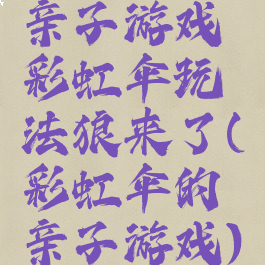 亲子游戏
彩虹伞玩
法狼来了(
彩虹伞的
亲子游戏)